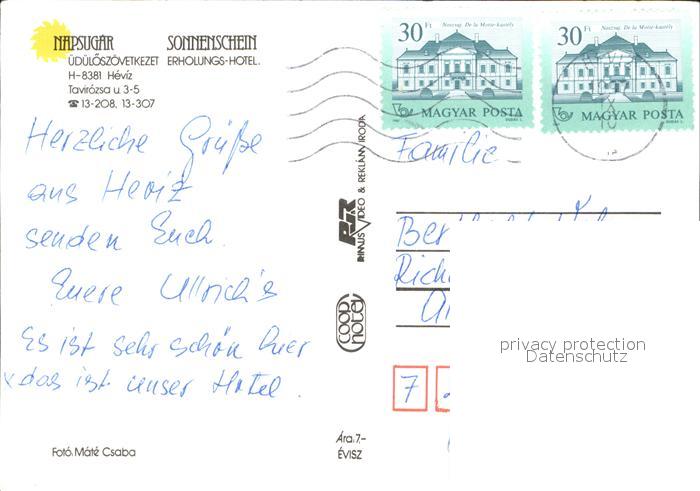 NAPSUGÁR SONNENSCHEIN
ÜDÜLŐSZÖVETKEZET ERHOLUNGS-HOTEL.
H-8381 Hévíz
Tavirózsa u. 3-5
☎ 13-208, 13-307
Herzliche Grüße
aus Heviz
senden Euch
Euere Ullrich's
Es ist sehr schön hier
x das ist unser Hotel.
Fotó: Máté Csaba
VIDEO & REKLÁM IRODA
COOP hotel
Ára: 7,-
ÉVISZ
30 Ft Noszvaj, De la Motte-kastély
MAGYAR POSTA
30 Ft Noszvaj, De la Motte-kastély
MAGYAR POSTA
Familie
Ber
Rich
7
privacy protection
Datenschutz